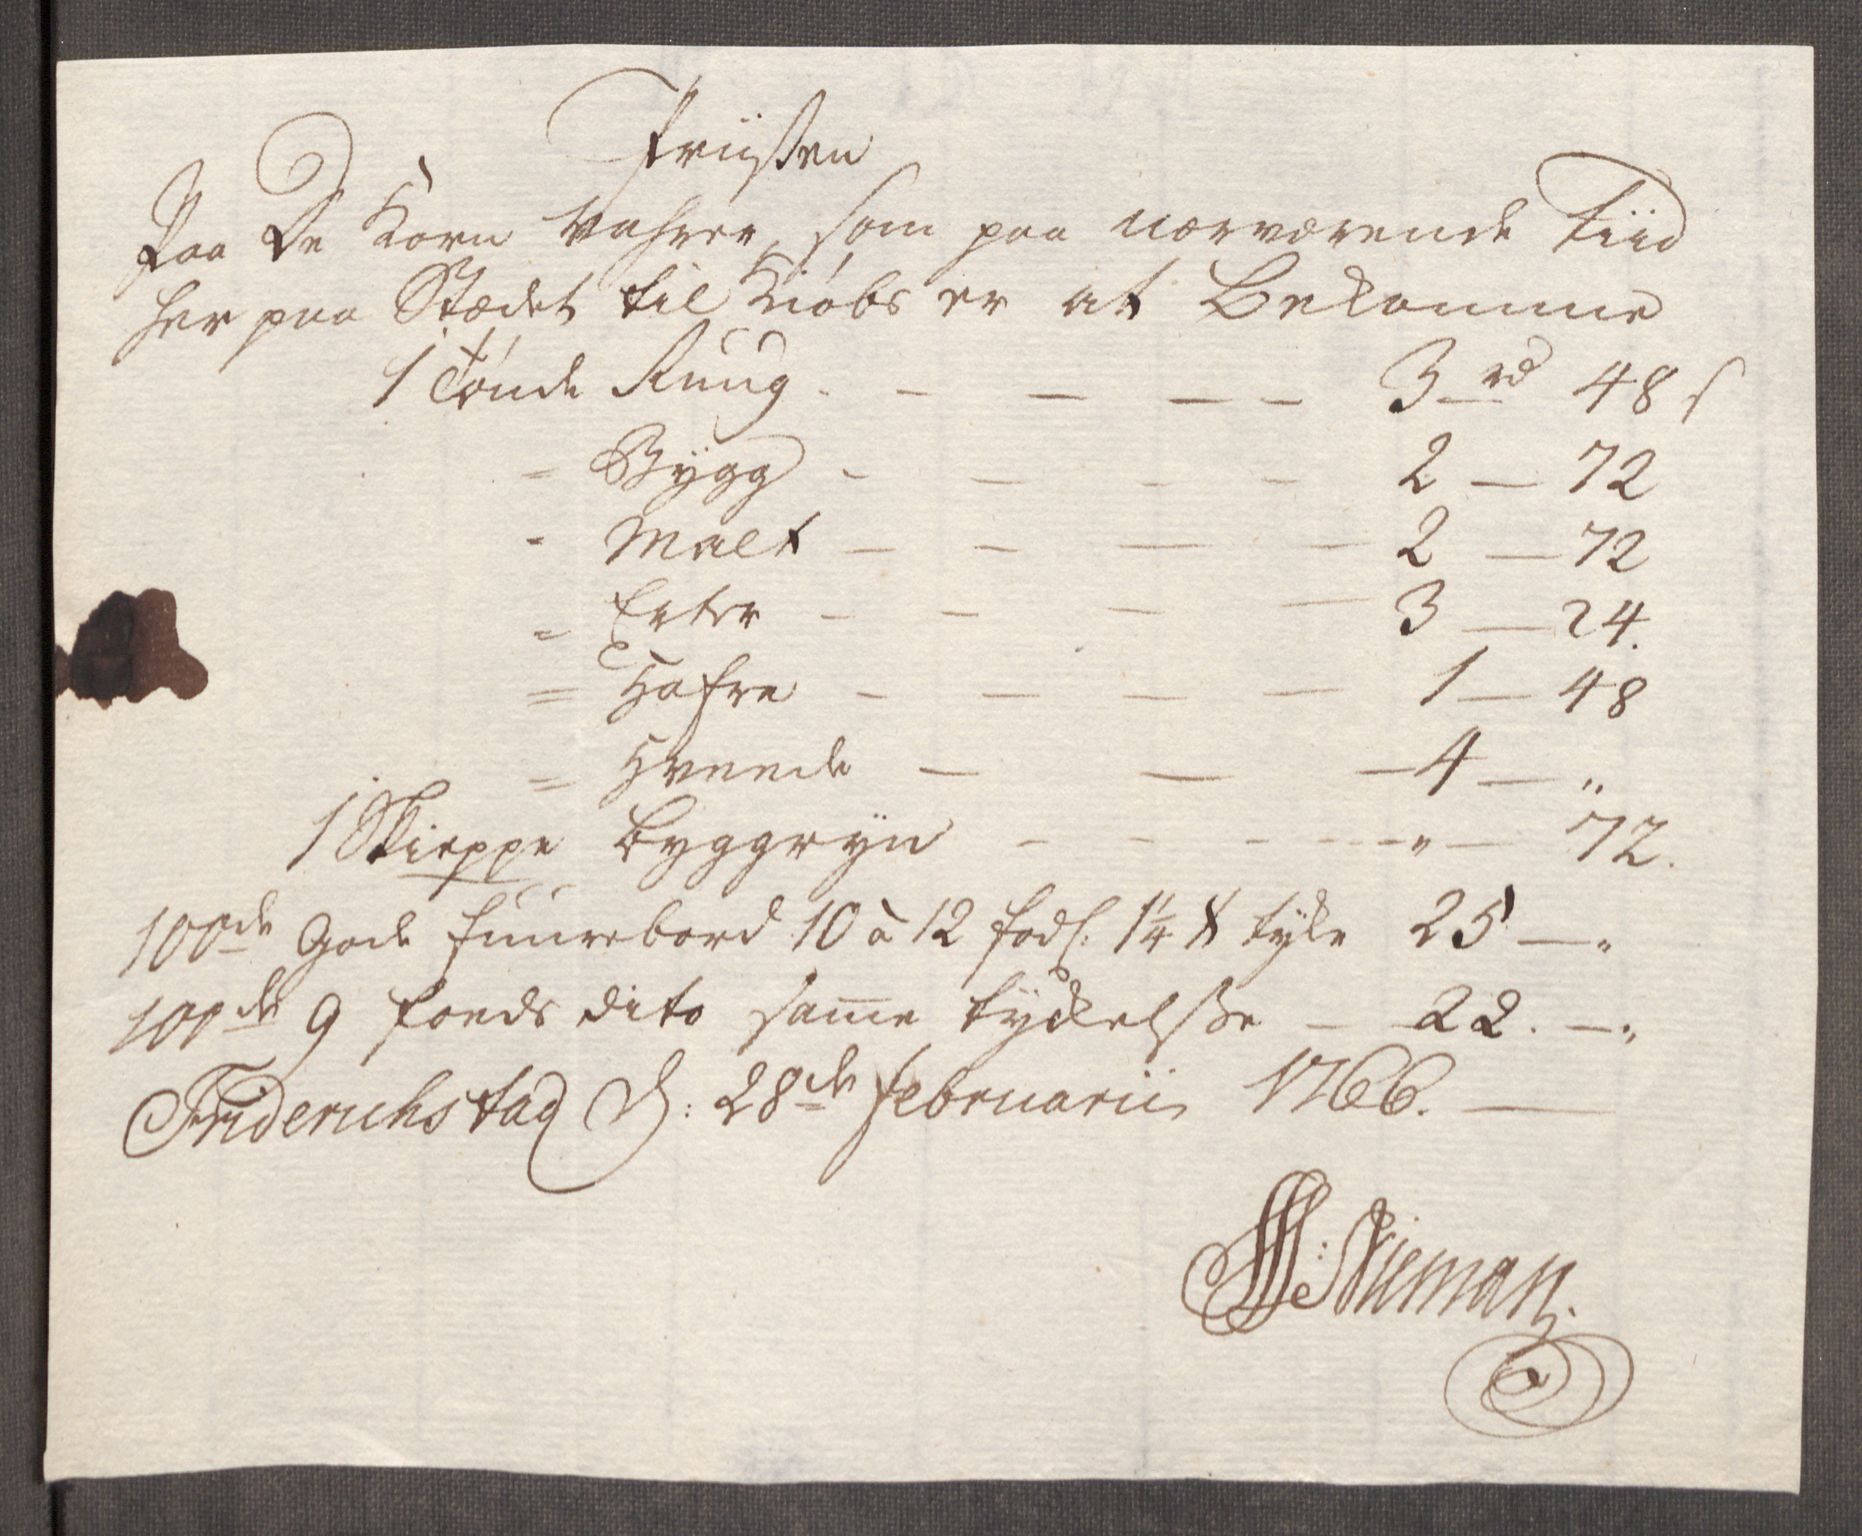 Priisen
Paa De Korn Vahrer, som paa nærværende Tiid
her paa Stædet til Kiøbs er at Bekomme
1 Tønde Ruug - - - - 3 rd 48 s
- Bygg - - - - 2 - 72
- Malt - - - - 2 - 72
= Erter - - - - 3 - 24.
= Hafre - - - - 1 - 48
= Hveede - - - 4 - "
1 Skieppe Byggryn - - - - " - 72.
100de Gode fuurebord 10 à 12 fods. 1¼ tykke 25 - "
100de 9 foeds dito samme tykelsse - 22. - "
Friderichstad D: 28de Februarii 1766. -
Nieman.